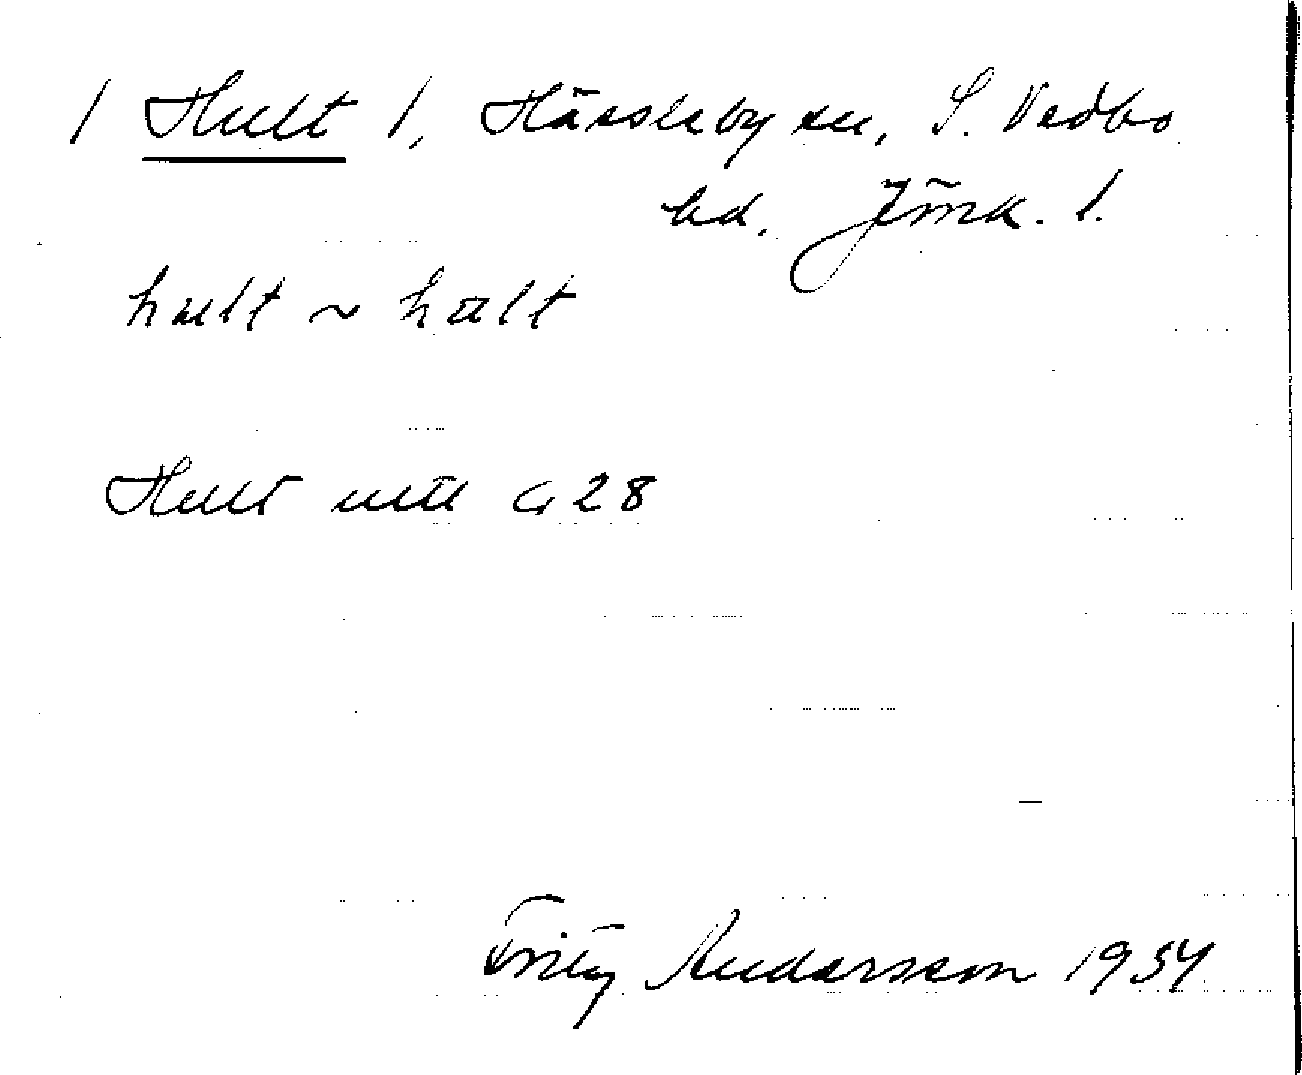 / Hult /, Hässleby sn, S. Vedbo
hd. Jönk. l.
hult ~ hælt
Hult mtl G 28
Fritz Andersson 1934